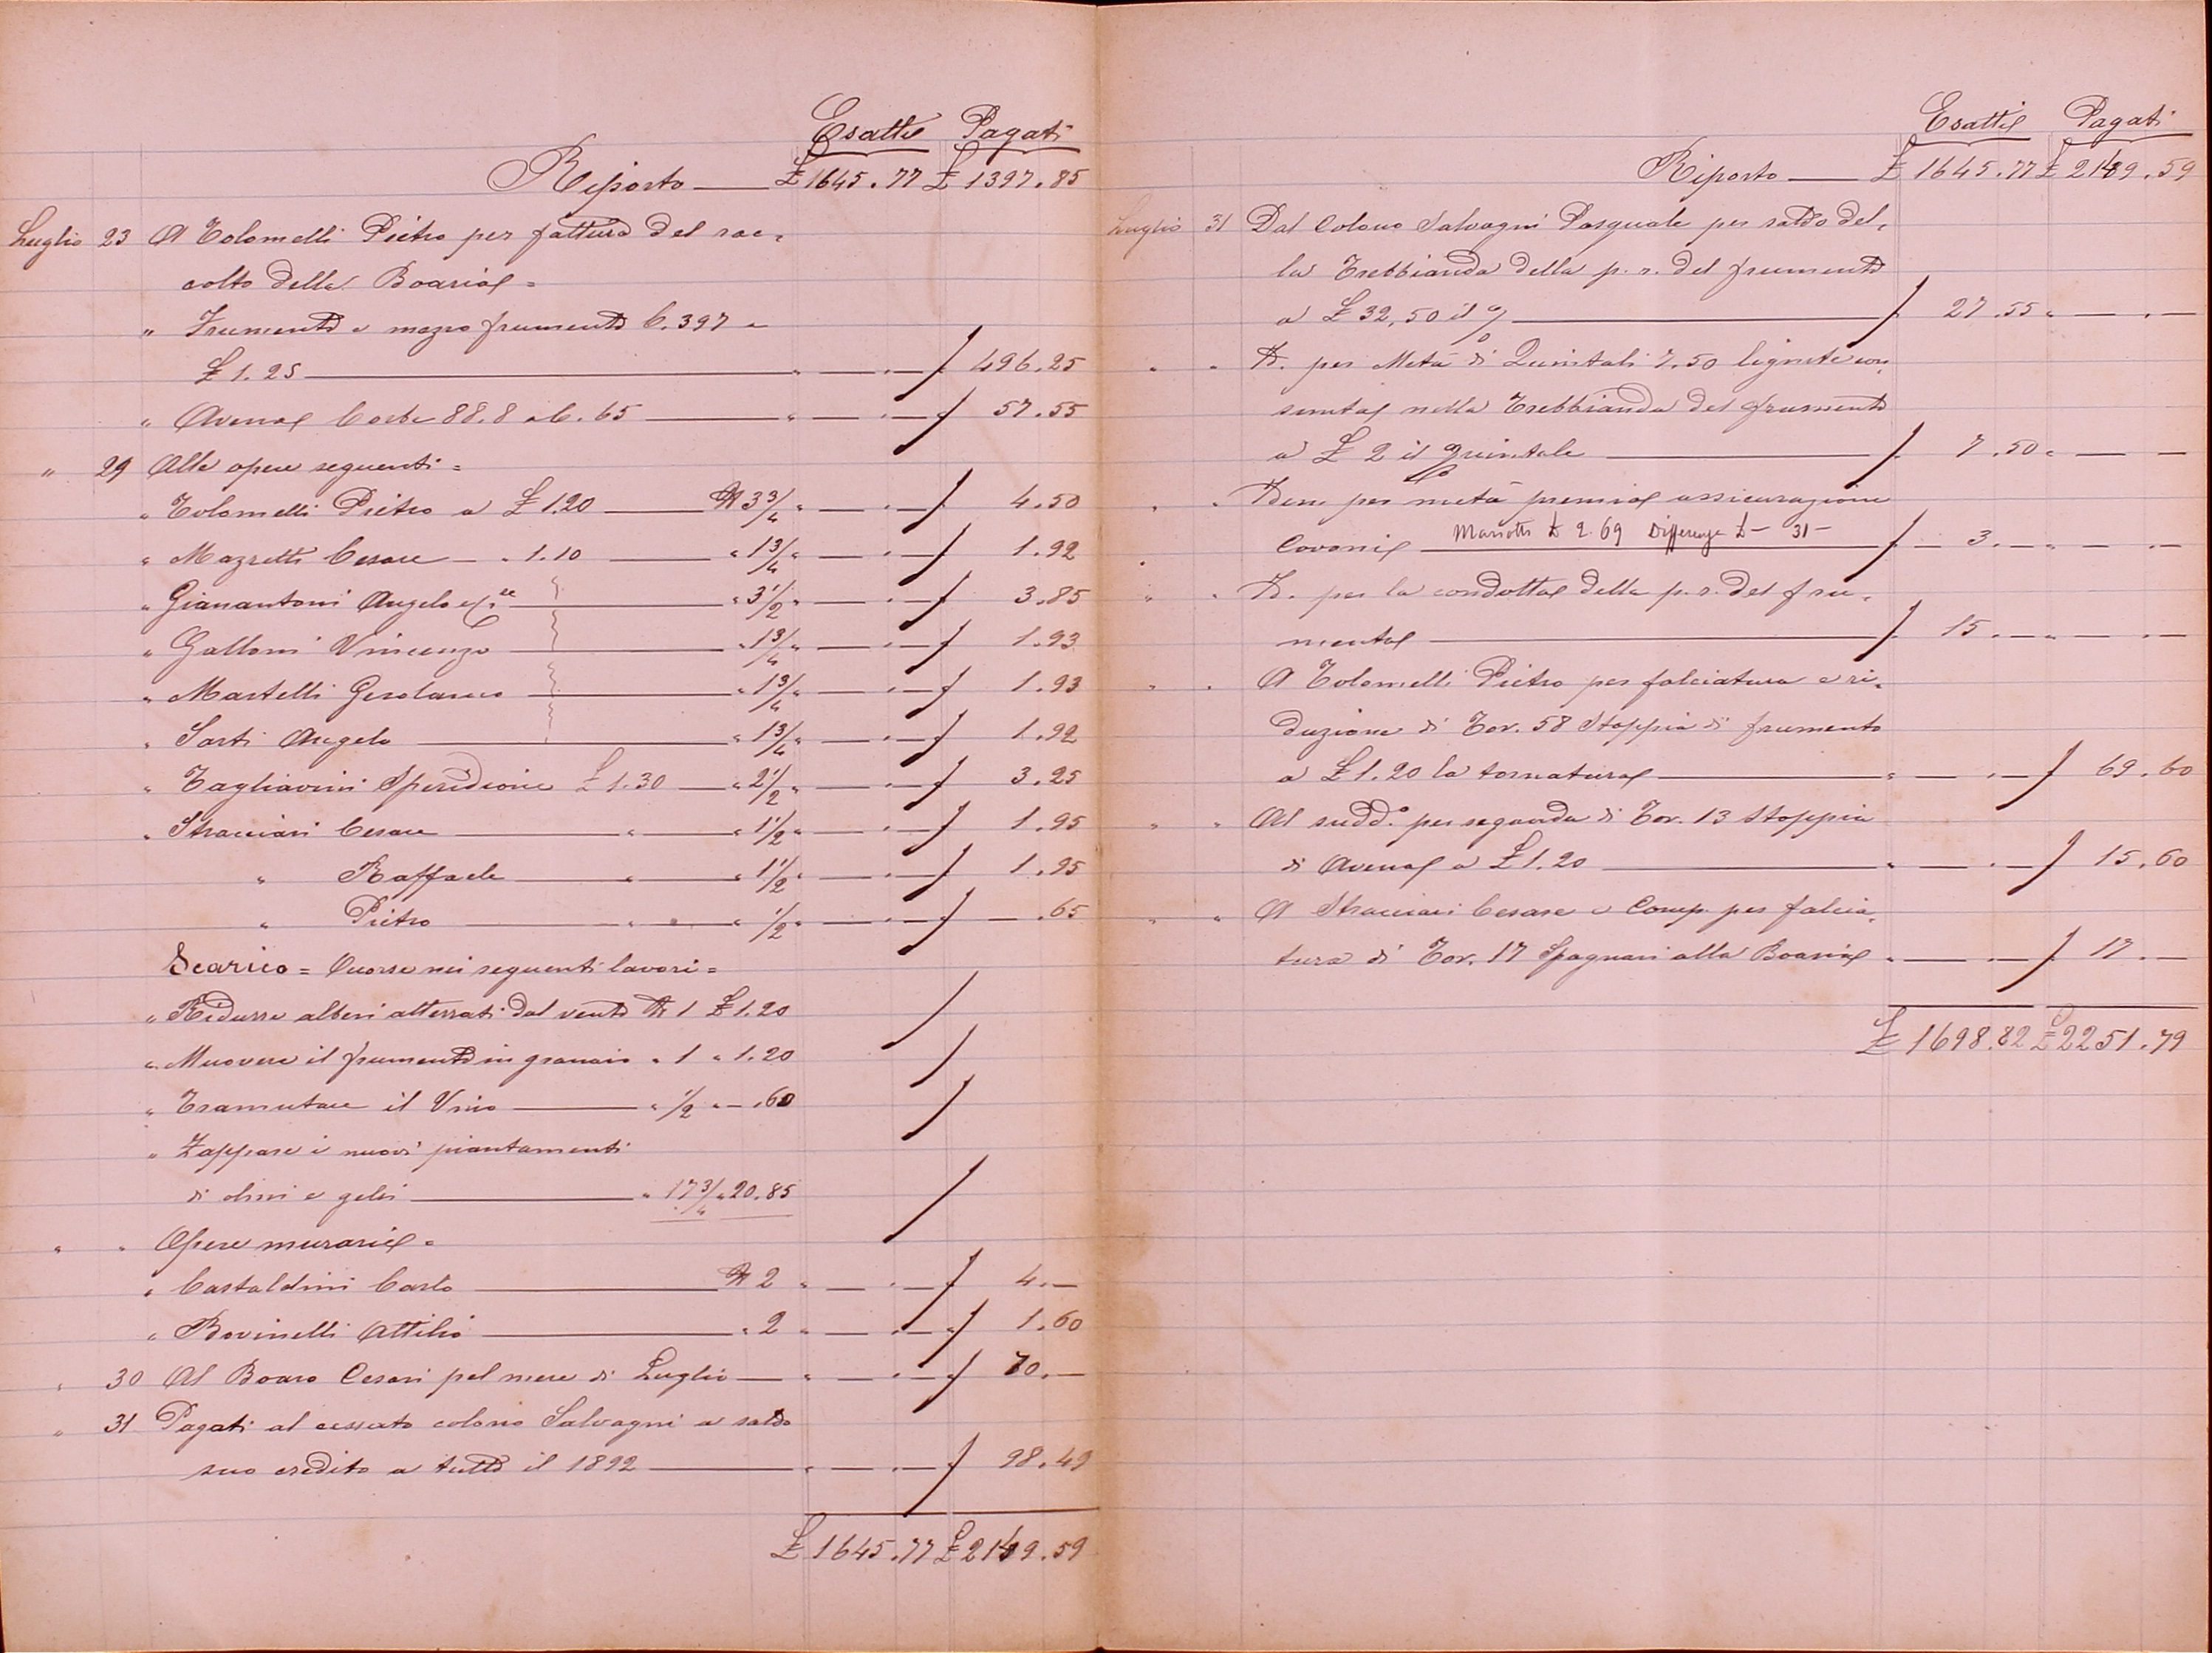 Esatti Pagati
Riporto — £ 1645.77 £ 1397.85
Luglio 23 A Tolomelli Pietro per fattura del rac-
colto della Boaria =
" Frumento e mazzo frumento C. 397 a
£ 1.25 — " — . — 496.25
" Avena Corbe 88.8 a C. 65 — " — . — 57.55
" 29 Alle opere seguenti =
" Tolomelli Pietro a £ 1.20 — N 3 3/4 " — . — 4.50
" Mazzetti Cesare — " 1.10 — " 1 3/4 " — . — 1.92
" Gianantoni Angelo — " 3 1/2 " — . — 3.85
" Galloni Vincenzo — " 1 3/4 " — . — 1.93
" Martelli Gerolamo — " 1 3/4 " — . — 1.93
" Sarti Angelo — " 1 3/4 " — . — 1.92
" Tagliavini Speridione £ 1.30 — " 2 1/2 " — . — 3.25
" Stracciari Cesare — " — " 1 1/2 " — . — 1.95
" Raffaele — " — " 1 1/2 " — . — 1.95
" Pietro — " " " 1/2 " — . — — .65
Scarico = Occorse nei seguenti lavori =
" Ridurre alberi atterrati dal vento N 1 £ 1.20
" Muovere il frumento in granaio " 1 " 1.20
" Tramutare il Vino — " 1/2 " — .60
" Zappare i nuovi piantamenti
di olmi e gelsi — " 17 3/4 " 20.85
" " Opere murarie =
" Castaldini Carlo — N 2 " — . — 4. —
" Bovinelli Attilio — " 2 " — . — 1.60
" 30 Al Boaro Cesari pel mese di Luglio — " — . — 70. —
" 31 Pagati al cessato colono Salvagni a saldo
suo credito a tutto il 1892 — " — . — 98.49
£ 1645.77 £ 2149.59
Esatti Pagati
Riporto — £ 1645.77 £ 2149.59
Luglio 31 Dal Colono Salvagni Pasquale per saldo del-
la Trebbianda della p. r. del frumento
a £ 32,50 il % — 27.55 " — . —
" " Id. per Metà di Quintali 7.50 lignite con-
sunta nella Trebbianda del frumento
a £ 2 il quintale — 7.50 " — —
" " Idem per metà premio assicurazione
Mariotti £ 2.69 Differenza £ — 31 —
" Covoni — 3. — " — . —
" " Id. per la condotta della p. r. del fru-
mento — 15. — " — . —
" " A Tolomelli Pietro per falciatura e ri-
duzione di Tor. 58 Stoppia di frumento
a £ 1.20 la tornatura — " — . — 69.60
" " Al sudd.o per seganda di Tor. 13 Stoppia
di Avena a £ 1.20 — " — . — 15.60
" " A Stracciari Cesare e Comp. per falcia-
tura di Tor. 17 Spagnari alla Boaria " — . — 17. —
£ 1698.82 £ 2251.79